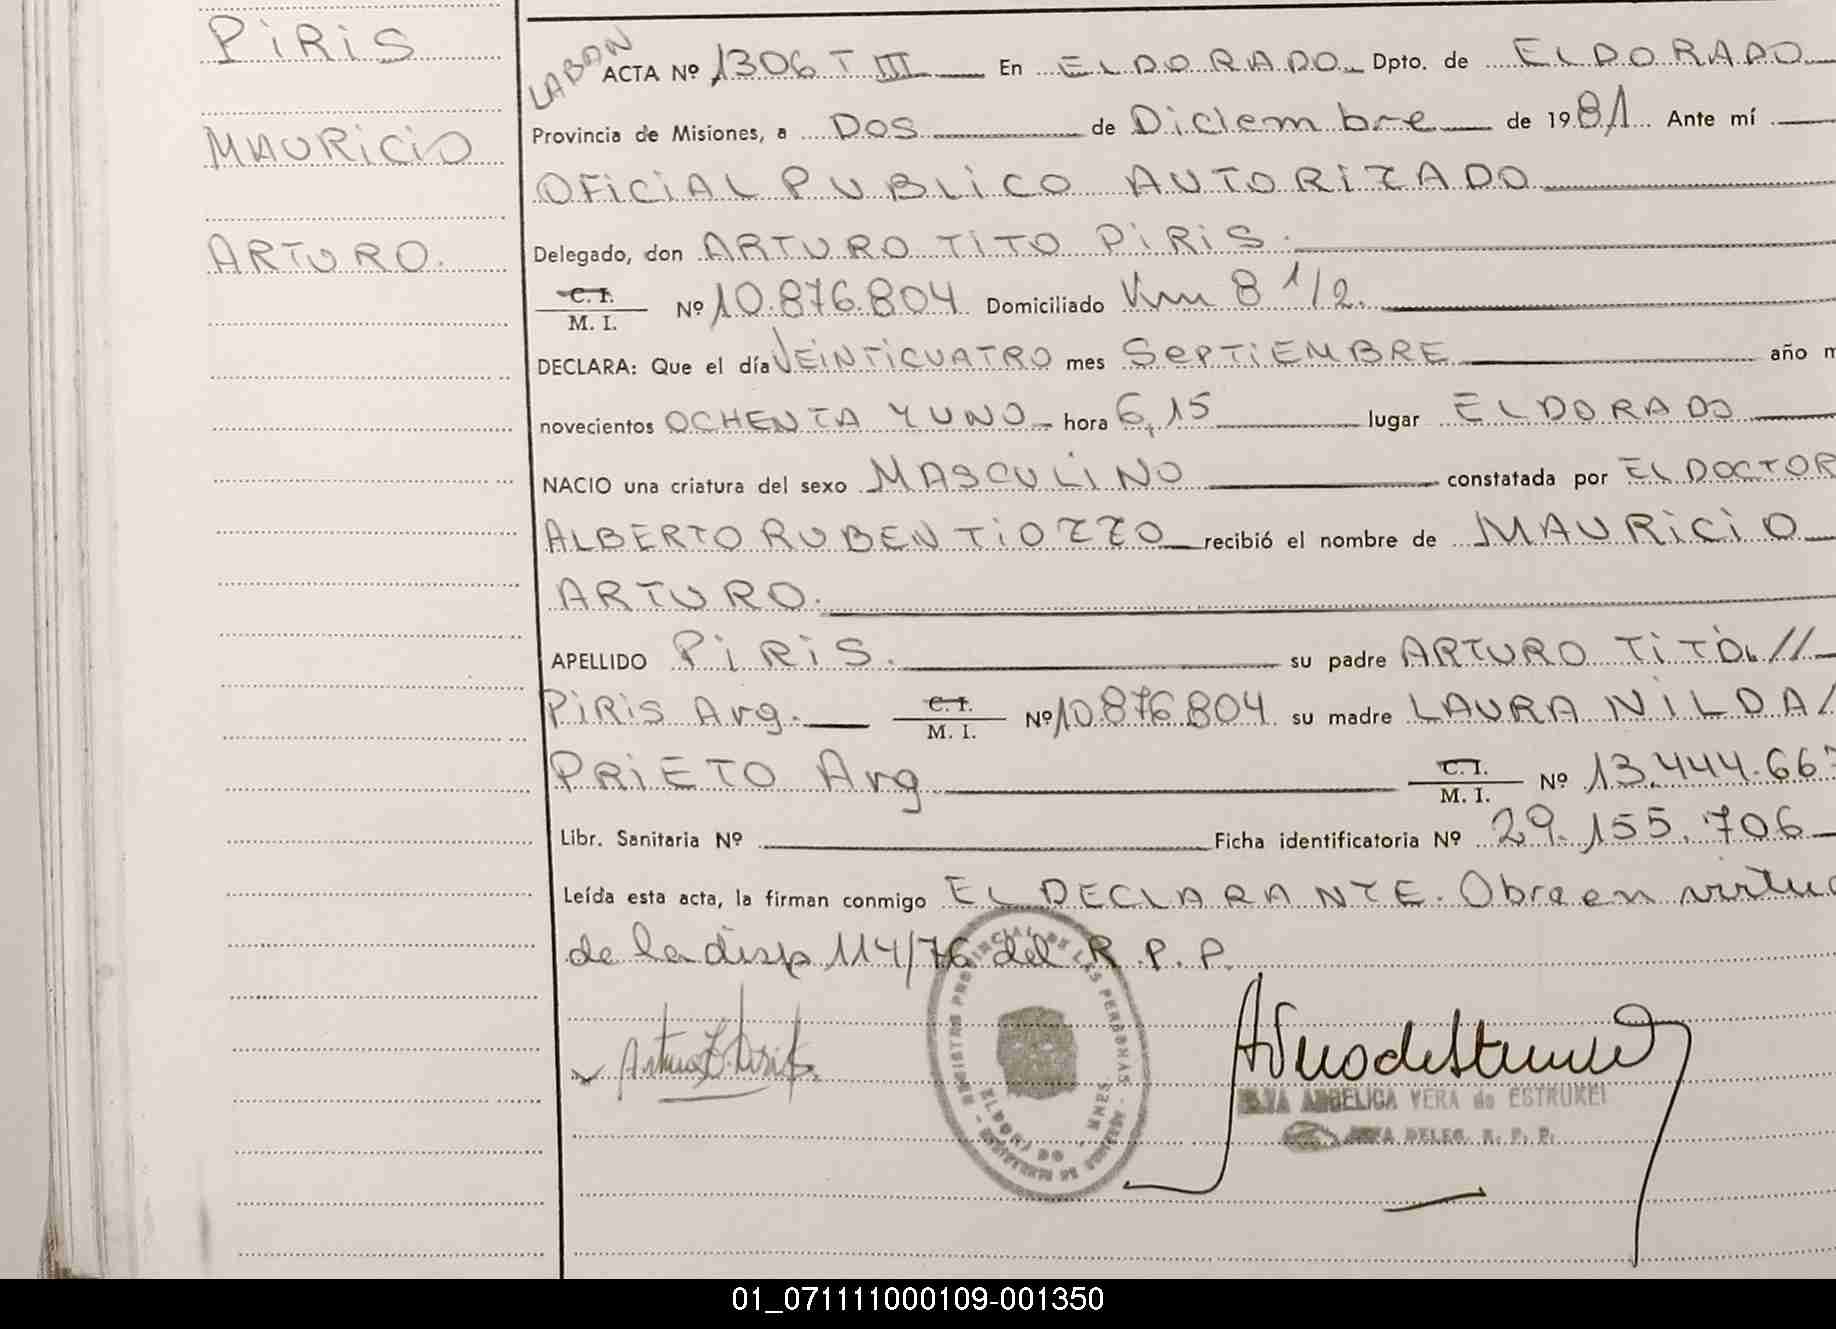 PIRIS
MAURICIO
ARTURO.
LABAN
ACTA Nº 1306 T III En ELDORADO Dpto. de ELDORADO
Provincia de Misiones, a DOS de Diciembre de 1981 Ante mí
OFICIAL PUBLICO AUTORIZADO
Delegado, don ARTURO TITO PIRIS.
C. I.
M. I. Nº 10.876.804 Domiciliado Km 8 1/2.
DECLARA: Que el día VEINTICUATRO mes SEPTIEMBRE año m
novecientos OCHENTA Y UNO hora 6,15 lugar ELDORADO
NACIO una criatura del sexo MASCULINO constatada por EL DOCTOR
ALBERTO RUBEN TIOZZO recibió el nombre de MAURICIO
ARTURO.
APELLIDO PIRIS. su padre ARTURO TITO //
PIRIS Arg. C. I. M. I. Nº 10.876.804 su madre LAURA NILDA /
PRIETO Arg C. I. M. I. Nº 13.444.667
Libr. Sanitaria Nº Ficha identificatoria Nº 29.155.706
Leída esta acta, la firman conmigo EL DECLARANTE. Obra en virtud
de la disp 114/76 del R.P.P.
REGISTRO PROVINCIAL DE LAS PERSONAS
ELDORADO MNES.
ANGELICA VERA de ESTRUKEL
DELEG. R. P. P.
01_071111000109-001350